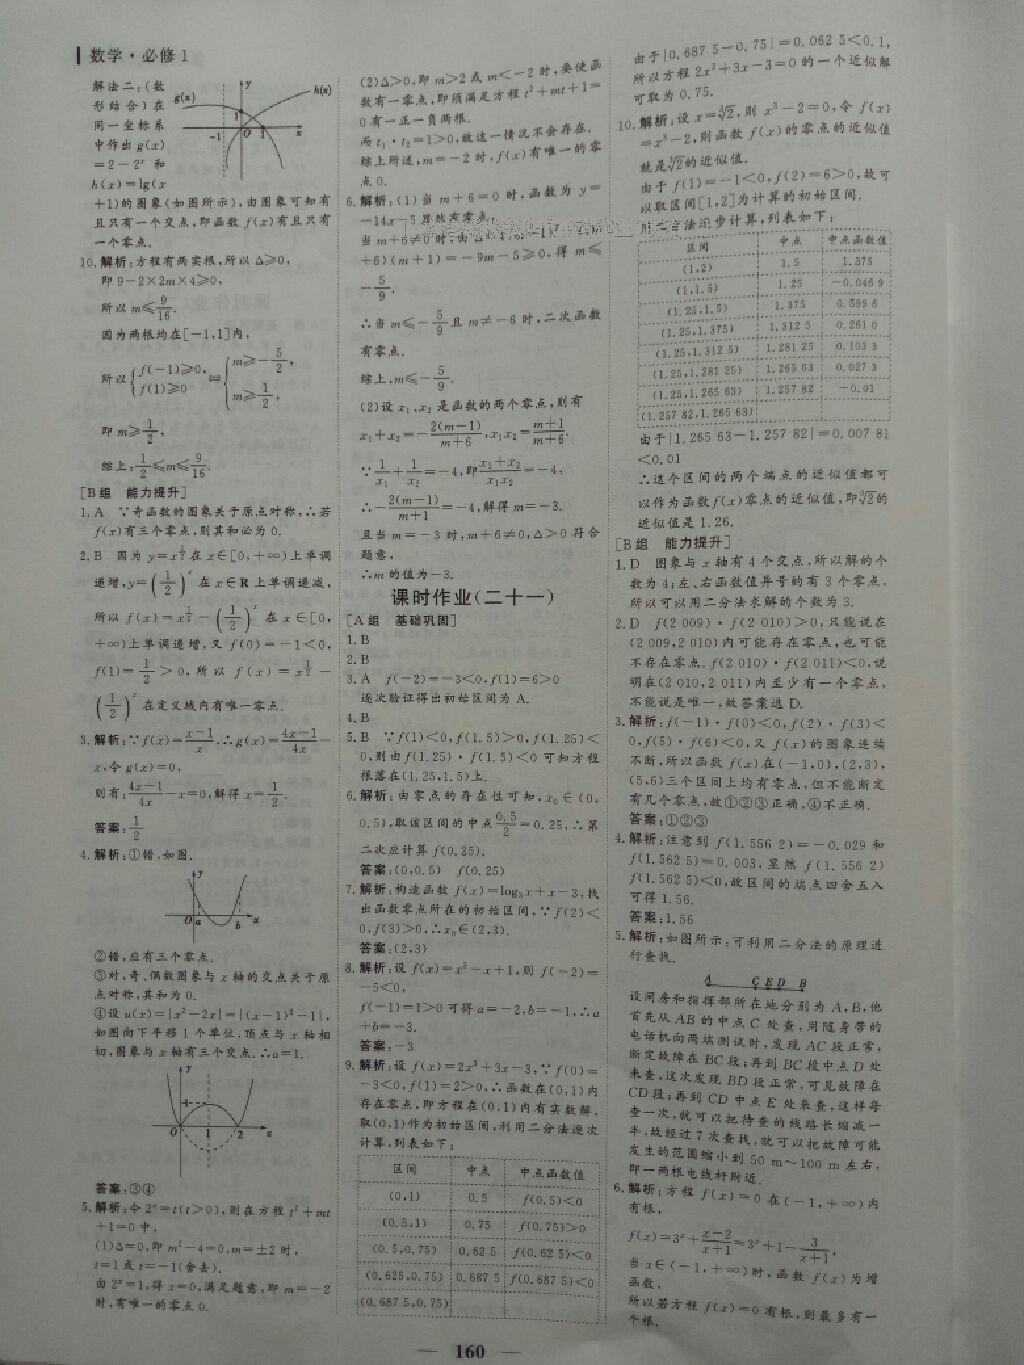 数学·必修1
解法二:(数
形结合)在
同一坐标系
中作出g(x)
=2-2ˣ 和
h(x)=lg(x
+1)的图象(如图所示),由图象可知有
且只有一个交点,即函数f(x)有且只有
一个零点.
10.解析:方程有两实根,所以Δ≥0,
即9-2×2m×4≥0,
所以m≤9/16.
因为两根均在[-1,1]内,
所以{f(-1)≥0, f(1)≥0 ⇔ {m≥-5/2, m≥1/2,
即m≥1/2,
综上:1/2≤m≤9/16.
[B组 能力提升]
1.A ∵奇函数的图象关于原点对称,∴若
f(x)有三个零点,则其和必为0.
2.B 因为y=x^(1/2)在x∈[0,+∞)上单调
递增,y=(1/2)ˣ在x∈R上单调递减,
所以f(x)=x^(1/2)-(1/2)ˣ在x∈[0,
+∞)上单调递增,又f(0)=-1<0,
f(1)=1/2>0,所以f(x)=x^(1/2)-
(1/2)ˣ在定义域内有唯一零点.
3.解析:∵f(x)=(x-1)/x,∴g(x)=(4x-1)/4x-
x,令g(x)=0,
则有:(4x-1)/4x-x=0,解得x=1/2.
答案:1/2
4.解析:①错,如图.
②错,应有三个零点.
③对,奇、偶数图象与x轴的交点关于原
点对称,其和为0.
④设u(x)=|x²-2x|=|(x-1)²-1|,
如图向下平移1个单位,顶点与x轴相
切,图象与x轴有三个交点.∴a=1.
答案:③④
5.解析:令2ˣ=t(t>0),则在方程t²+mt
+1=0中,
(1)Δ=0,即m²-4=0,m=±2时,
t=1或t=-1(舍去).
由2ˣ=1,得x=0,满足题意,即m=-2
时,有唯一的零点0.
(2)Δ>0,即m>2或m<-2时,要使函
数有一零点,即须满足方程t²+mt+1=
0有一正一负两根.
而t₁·t₂=1>0,故这一情况不会存在.
综上所述,m=-2时,f(x)有唯一的零
点0.
6.解析:(1)当m+6=0时,函数为y=
-14x-5显然有零点
+6)(m+1)=-9m-5≥0,得m≤
-5/9.
∴当m≤-5/9且m≠-6时,二次函数
有零点.
综上,m≤-5/9.
(2)设x₁、x₂是函数的两个零点,则有
x₁+x₂=-2(m-1)/(m+6),x₁x₂=(m+1)/(m+6).
∵1/x₁+1/x₂=-4,即(x₁+x₂)/x₁x₂=-4,
∴-2(m-1)/(m+1)=-4,解得m=-3.
且当m=-3时,m+6≠0,Δ>0符合
题意,
∴m的值为-3.
课时作业(二十一)
[A组 基础巩固]
1.B
2.B
3.A f(-2)=-3<0,f(1)=6>0
逐次验证得出初始区间为A.
4.B
5.B ∵f(1)<0,f(1.5)>0,f(1.25)<
0,则由f(1.25)·f(1.5)<0可知方程
根落在(1.25,1.5)上.
6.解析:由零点的存在性可知,x₀∈(0,
0.5),取该区间的中点0.5/2=0.25,∴第
二次应计算f(0.25).
答案:(0,0.5) f(0.25)
7.解析:构造函数f(x)=log₃x+x-3,找
出函数零点所在的初始区间,∵f(2)<
0,f(3)>0,∴x₀∈(2,3).
答案:(2,3)
8.解析:设f(x)=x³-x+1,则f(-2)=
-5<0,
f(-1)=1>0可得a=-2,b=-1,∴a
+b=-3.
答案:-3
9.解析:设f(x)=2x³+3x-3,∵f(0)=
-3<0,f(1)=2>0,∴函数在(0,1)内
存在零点,即方程在(0,1)内有实数解,
取(0,1)作为初始区间,利用二分法逐次
计算,列表如下:
区间 中点 中点函数值
(0,1) 0.5 f(0.5)<0
(0.5,1) 0.75 f(0.75)>0
(0.5,0.75) 0.62 5 f(0.62 5)<0
(0.625,0.75) 0.687 5 f(0.687 5)<0
(0.687 5,0.75)
由于|0.687 5-0.75|=0.062 5<0.1,
所以方程2x³+3x-3=0的一个近似解
可取为0.75.
10.解析:设x=∛2,则x³-2=0,令f(x)
=x³-2,则函数f(x)的零点的近似值
就是∛2的近似值.
由于f(1)=-1<0,f(2)=6>0,故可
以取区间[1,2]为计算的初始区间.
用二分法逐步计算,列表如下:
区间 中点 中点函数值
(1,2) 1.5 1.375
(1,1.5) 1.25 -0.046 9
(1.25,1.5) 1.375 0.599 6
(1.25,1.375) 1.312 5 0.261 0
(1.25,1.312 5) 1.281 25 0.103 3
(1.25,1.281 25) 1.265 63 0.027 3
(1.25,1.265 63) 1.257 82 -0.01
(1.257 82,1.265 63)
由于|1.265 63-1.257 82|=0.007 81
<0.01
∴这个区间的两个端点的近似值都可
以作为函数f(x)零点的近似值,即∛2的
近似值是1.26.
[B组 能力提升]
1.D 图象与x轴有4个交点,所以解的个
数为4;左、右函数值异号的有3个零点,
所以可以用二分法求解的个数为3.
2.D f(2 009)·f(2 010)>0,只能说在
(2 009,2 010)内可能存在零点,也可能
不存在零点.f(2 010)·f(2 011)<0,说
明在(2 010,2 011)内至少有一个零点,
不能说是唯一,故答案选D.
3.解析:f(-1)·f(0)<0,f(2)·f(3)<
0,f(5)·f(6)<0,又f(x)的图象连续
不断,所以函数f(x)在(-1,0),(2,3),
(5,6)三个区间上均有零点,但不能断定
有几个零点,故①②③正确,④不正确.
答案:①②③
4.解析:注意到f(1.556 2)=-0.029和
f(1.562 5)=0.003,显然f(1.556 2)
f(1.562 5)<0,故区间的端点四舍五入
可得1.56.
答案:1.56
5.解析:如图所示:可利用二分法的原理进
行查找.
A C E D B
设闸房和指挥部所在地分别为A,B,他
首先从AB的中点C处查,用随身带的
电话机向两端测试时,发现AC段正常,
断定故障在BC段;再到BC段中点D处
来查,这次发现BD段正常,可见故障在
CD段;再到CD中点E处来查,这样每
查一次,就可以把待查的线路长缩减一
半,故经过7次查找,就可以把故障可能
发生的范围缩小到50 m~100 m左右,
即一两根电线杆附近.
6.解析:方程f(x)=0在(-1,+∞)内
有根,
f(x)=3ˣ+(x-2)/(x+1)=3ˣ+1-3/(x+1),
当x∈(-1,+∞)时,函数f(x)为增
函数,
所以若方程f(x)=0有根,则最多有一
个根.
160